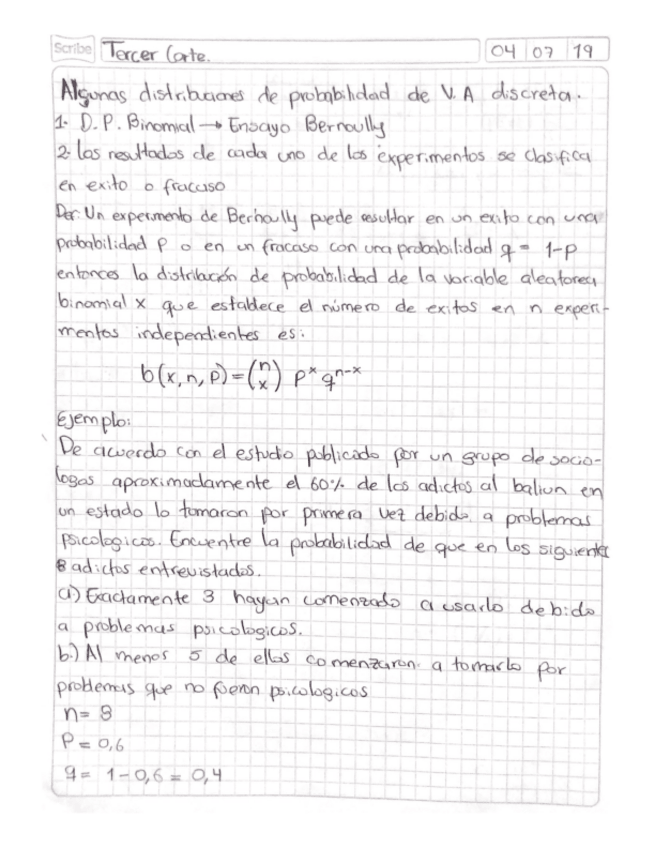 Scribe Tercer Corte. 04 07 19
Algunas distribuciones de probabilidad de V.A discreta.
1. D.P. Binomial → Ensayo Bernoully
2. Los resultados de cada uno de los experimentos se clasifica
en exito o fracaso
Def: Un experimento de Bernoully puede resultar en un exito con una
probabilidad p o en un fracaso con una probabilidad q = 1-p
entonces la distribución de probabilidad de la variable aleatorea
binomial x que establece el número de exitos en n experi-
mentos independientes es:
b(x,n,p)=(n x) p^x q^n-x
Ejemplo:
De acuerdo con el estudio publicado por un grupo de socio-
logos aproximadamente el 60% de los adictos al baliun en
un estado lo tomaron por primera vez debido a problemas
psicologicos. Encuentre la probabilidad de que en los siguientes
8 adictos entrevistados.
a) Exactamente 3 hayan comenzado a usarlo debido
a problemas psicologicos.
b.) Al menos 5 de ellos comenzaron a tomarlo por
problemas que no fueron psicologicos
n= 8
P= 0,6
q= 1-0,6 = 0,4